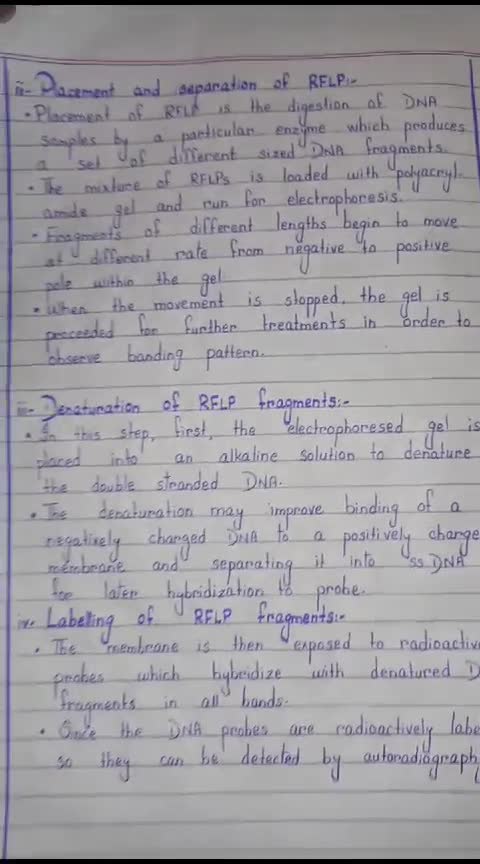 ii- Placement and separation of RFLP:-
• Placement of RFLP is the digestion of DNA
samples by a particular enzyme which produces
a set of different sized DNA fragments.
• The mixture of RFLPs is loaded with polyacryl-
amide gel and run for electrophoresis.
• Fragments of different lengths begin to move
at different rate from negative to positive
pole within the gel
• When the movement is stopped, the gel is
proceeded for further treatments in order to
observe banding pattern.
iii- Denaturation of RFLP fragments:-
• In this step, first, the electrophoresed gel is
placed into an alkaline solution to denature
the double stranded DNA.
• The denaturation may improve binding of a
negatively charged DNA to a positively charge
membrane and separating it into ssDNA
for later hybridization to probe.
iv- Labelling of RFLP fragments:-
• The membrane is then exposed to radioactiv
probes which hybridize with denatured D
fragments in all bands.
• Once the DNA probes are radioactively labe
so they can be detected by autoradiograph